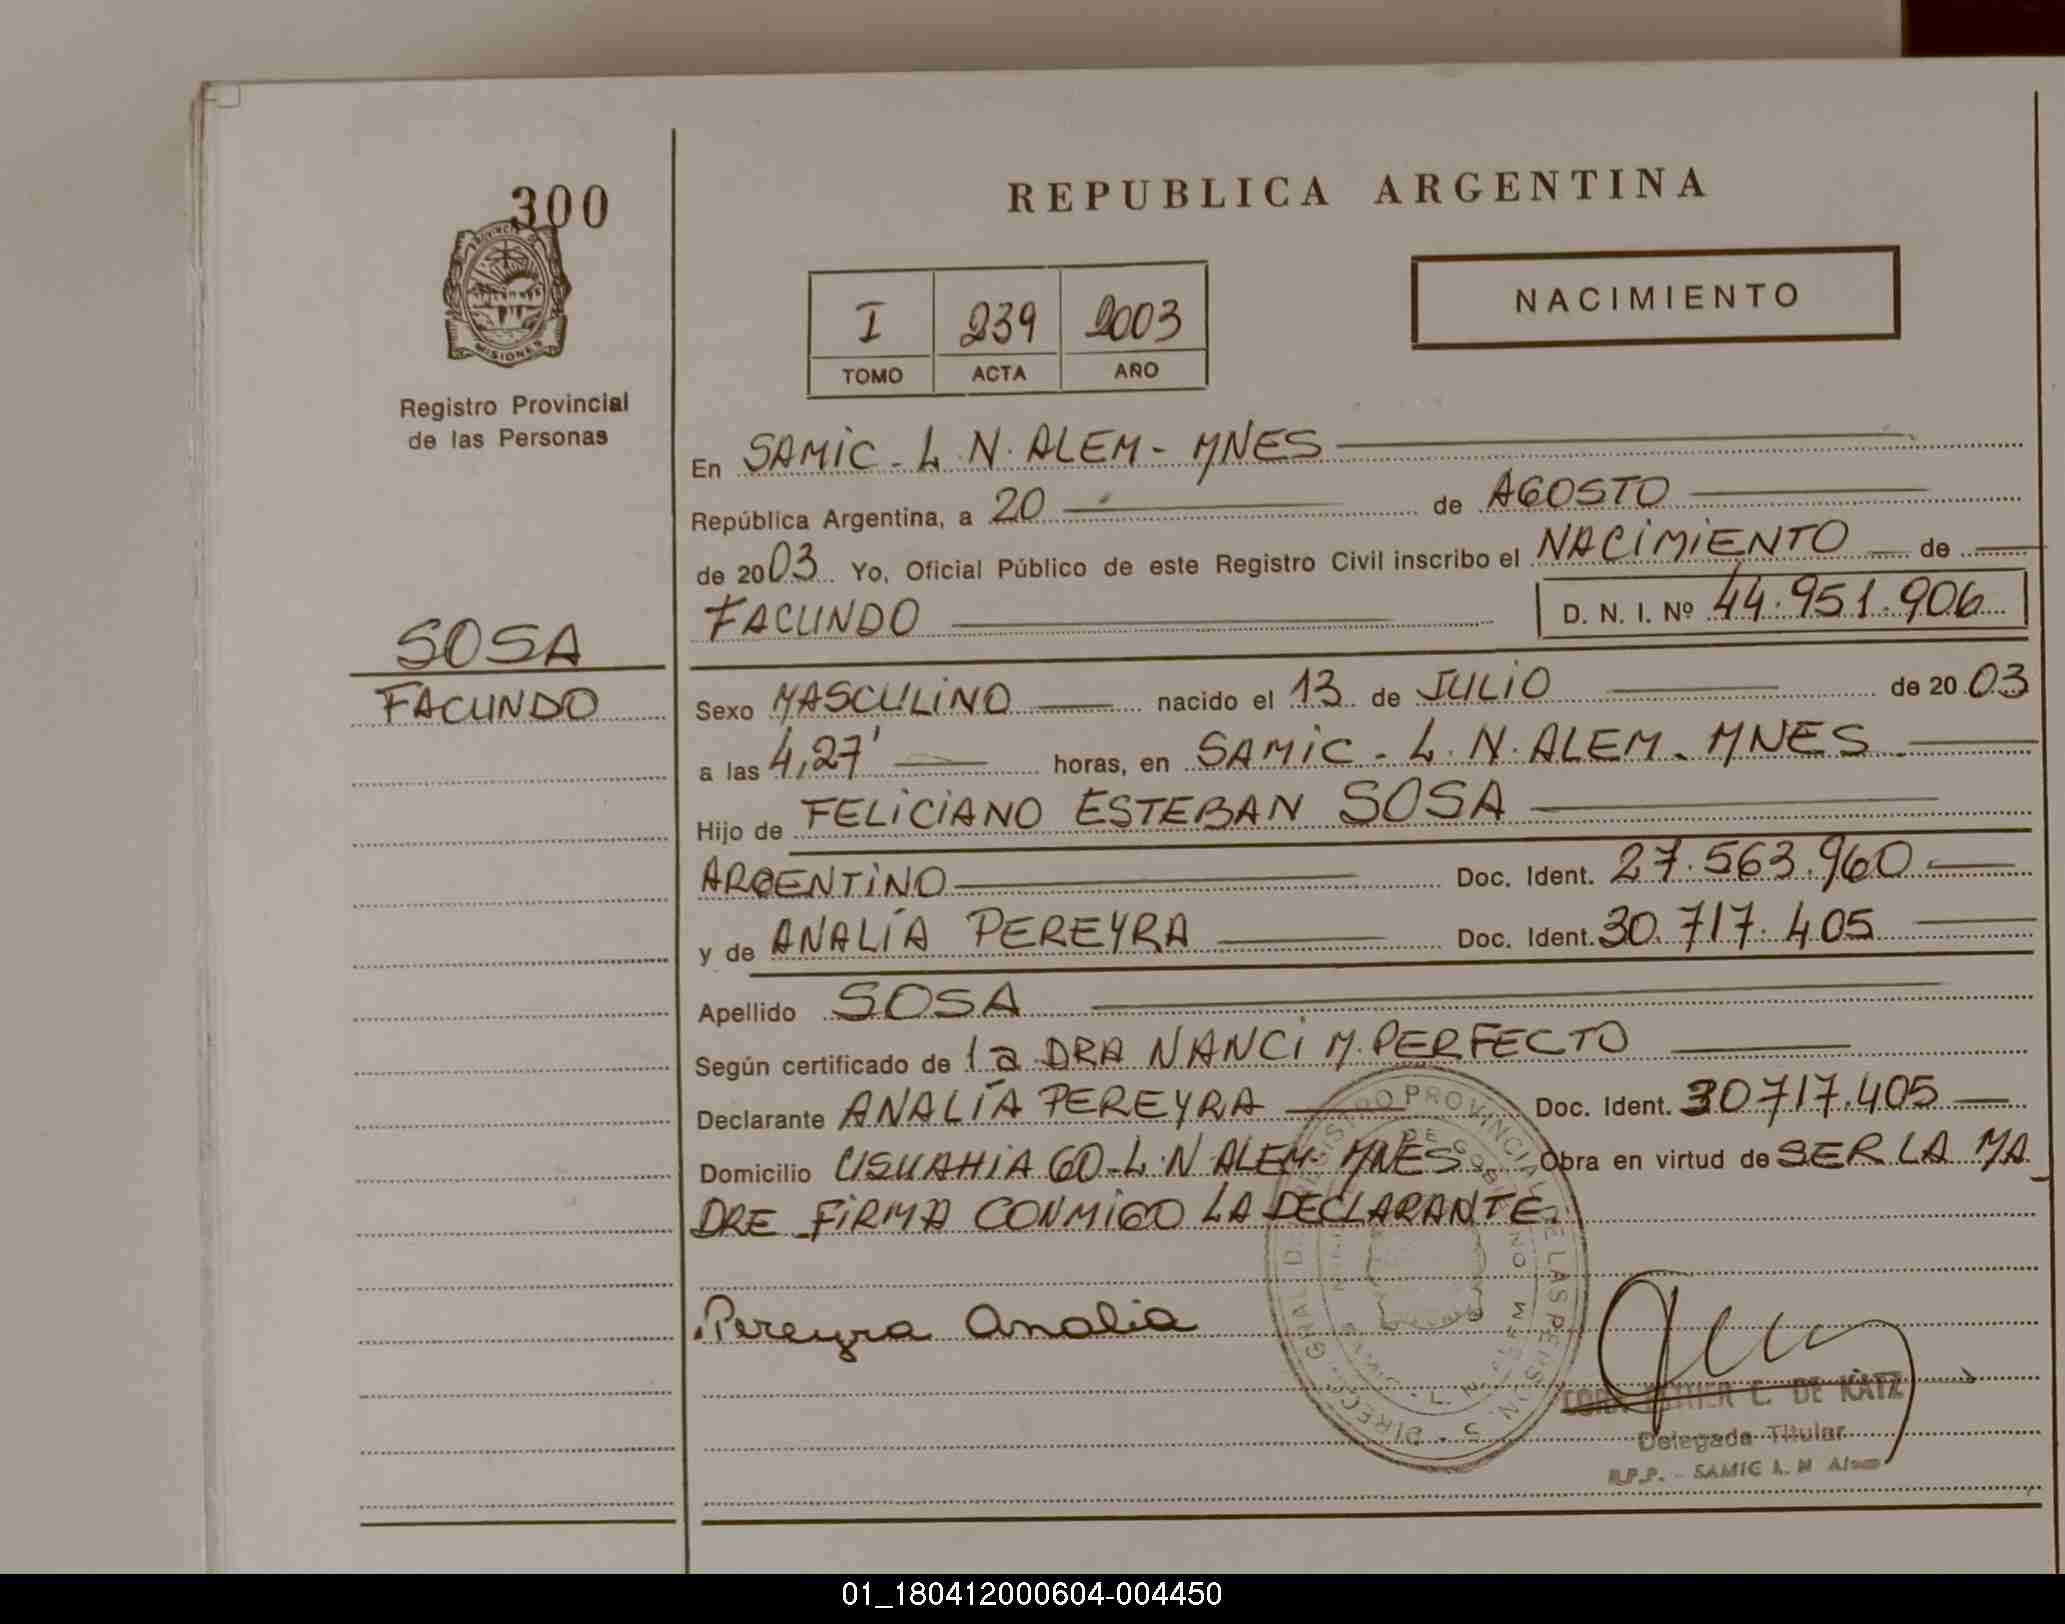 300
PROVINCIA DE
MISIONES
Registro Provincial
de las Personas
SOSA
FACUNDO
REPUBLICA ARGENTINA
I 239 2003
TOMO ACTA AÑO
NACIMIENTO
En SAMIC - L.N. ALEM - MNES
República Argentina, a 20 de AGOSTO
de 2003 Yo, Oficial Público de este Registro Civil inscribo el NACIMIENTO de
FACUNDO D. N. I. Nº 44.951.906
Sexo MASCULINO nacido el 13 de JULIO de 2003
a las 4,27' horas, en SAMIC - L.N. ALEM - MNES
Hijo de FELICIANO ESTEBAN SOSA
ARGENTINO Doc. Ident. 27.563.960
y de ANALÍA PEREYRA Doc. Ident. 30.717.405
Apellido SOSA
Según certificado de la DRA NANCI M. PERFECTO
Declarante ANALÍA PEREYRA Doc. Ident. 30717.405
Domicilio USUAHIA 60 - L.N ALEM - MNES Obra en virtud de SER LA MA
DRE FIRMA CONMIGO LA DECLARANTE.
Pereyra Analia
ESTHER C. DE KATZ
Delegada Titular
R.P.P. - SAMIC L. N Alem
01_180412000604-004450